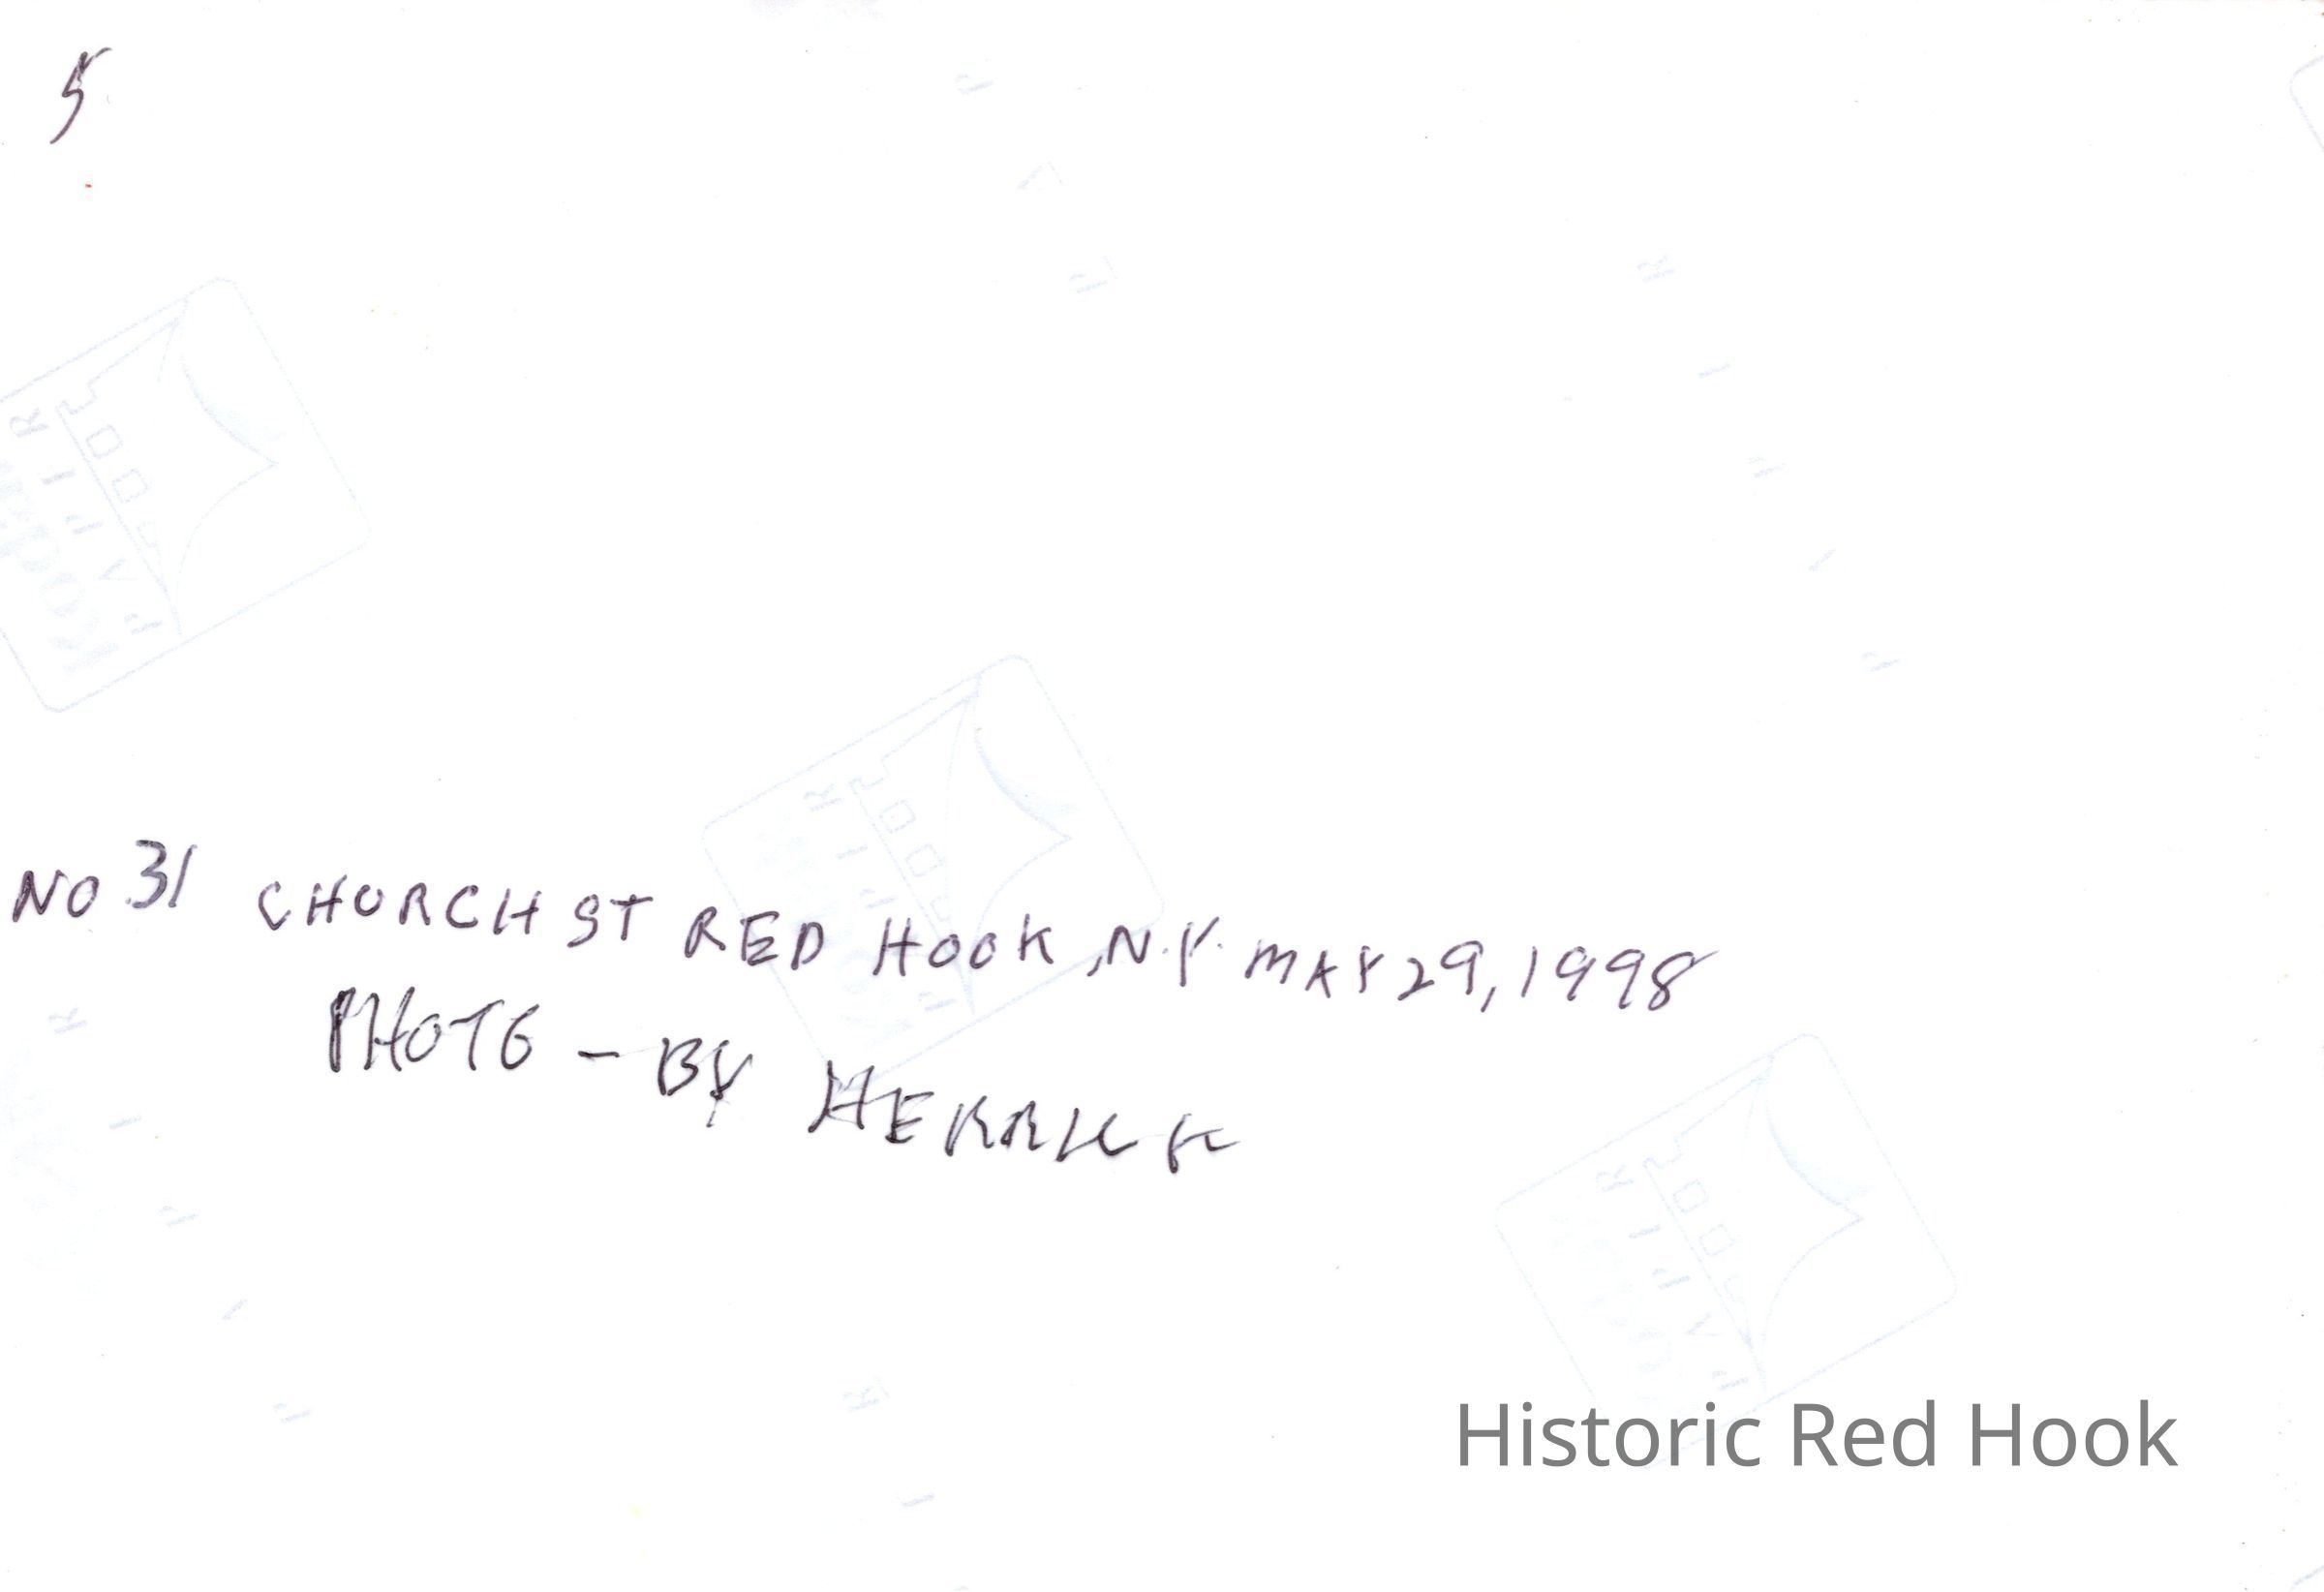 5
NO 31 CHURCH ST RED HOOK, N.Y. MAY 29, 1998
PHOTO - BY HERRICK
Historic Red Hook